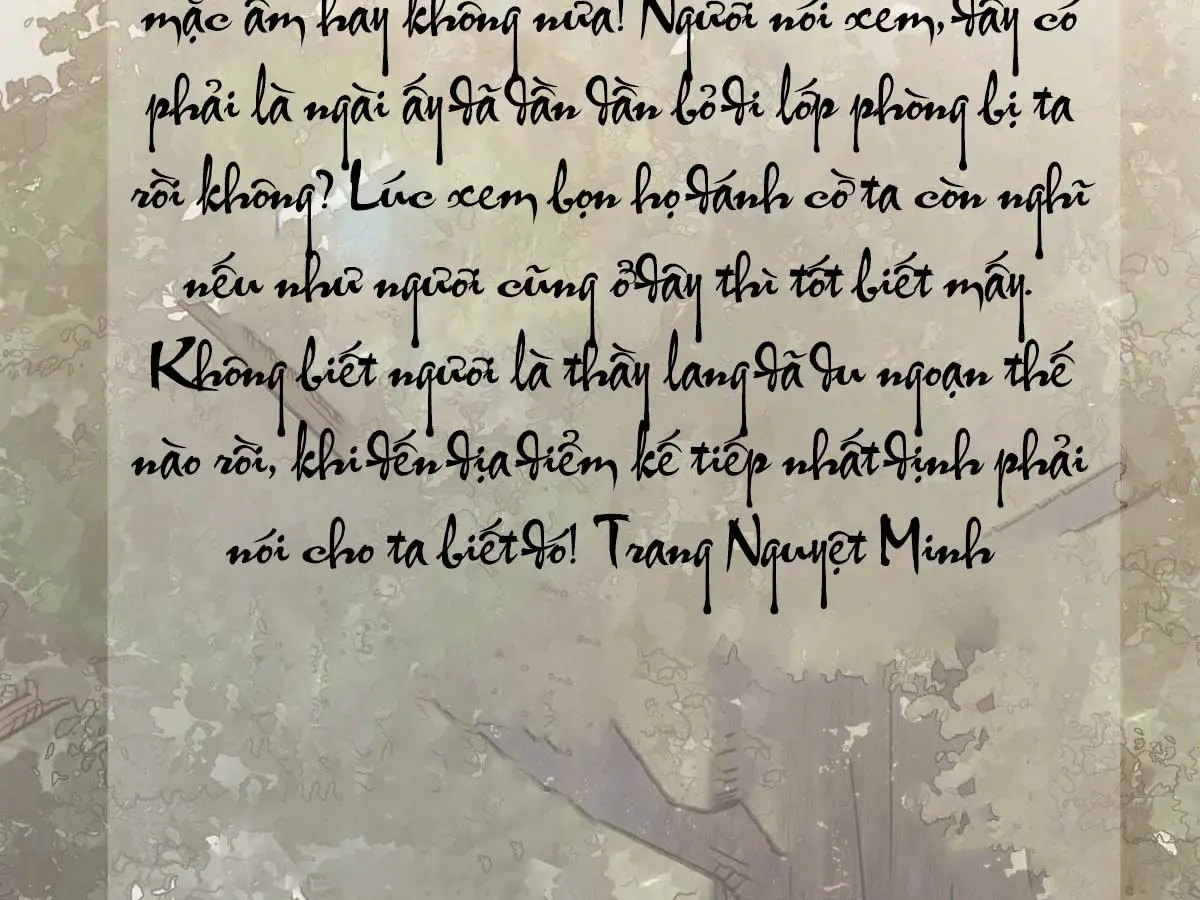 mặc ấm hay không nữa! Ngươi nói xem, đây có
phải là ngài ấy đã dần dần bỏ đi lớp phòng bị ta
rồi không? Lúc xem bọn họ đánh cờ ta còn nghĩ
nếu như ngươi cũng ở đây thì tốt biết mấy.
Không biết ngươi là thầy lang đã du ngoạn thế
nào rồi, khi đến địa điểm kế tiếp nhất định phải
nói cho ta biết đó! Trang Nguyệt Minh